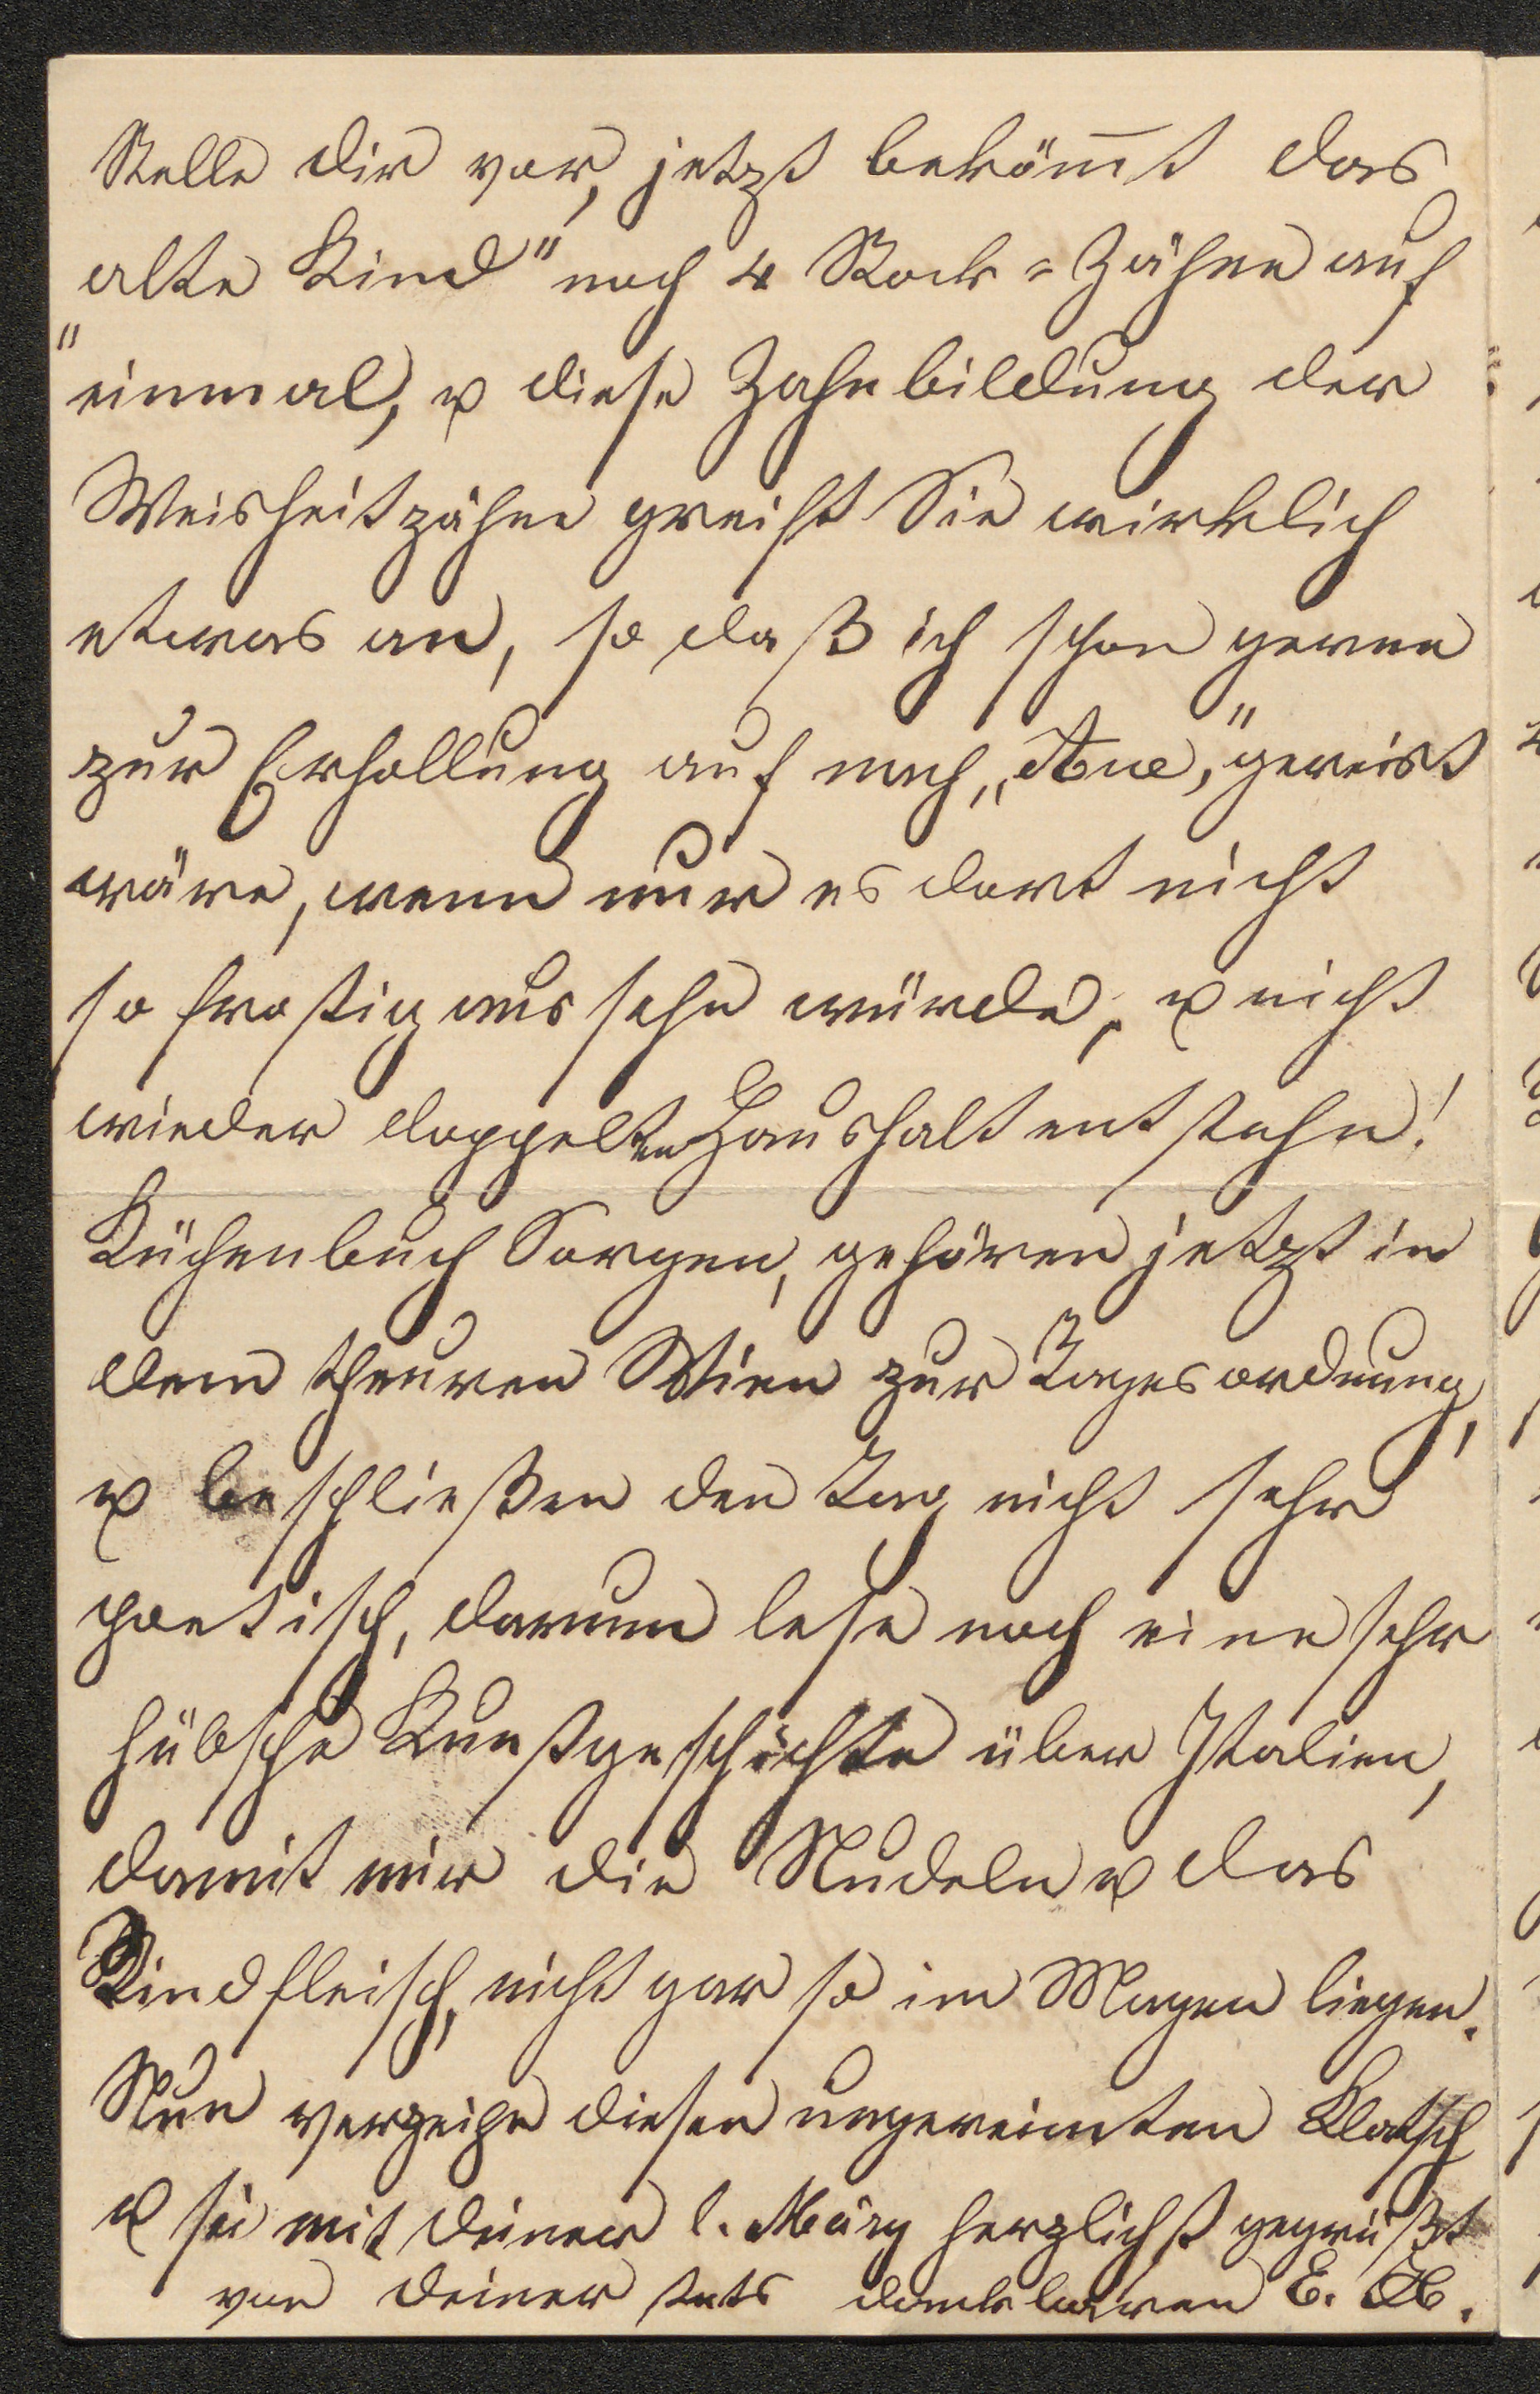 Stelle dir vor, jetzt beköm̄t das
„alte Kind" noch 4 Stock=Zähne auf
einmal, u diese Zahnbildung der
Weisheitzähne greift Sie wirklich
etwas an, so daß ich schon gerne
zur Erhollung auf nach „Aue," gereist
wäre, wenn nur es dort nicht
so frostig aussehn würde, u nicht
wieder doppelten Haushalt entstehn!
Küchenbuch Sorgen, gehören jetzt in
dem theuren Wien zur Tagesordnung,
u beschließen den Tag nicht sehr
poetisch, darum lese noch eine sehr
hübsche Kunstgeschichte über Italien,
damit mir die Nudeln u das
Rindfleisch, nicht gar so im Magen liegen.
Nun verzeihe diesen ungereimten Klatsch
u sei mit deiner l. Mary herzlichst gegrüßt
von deiner stets dankbaren E.